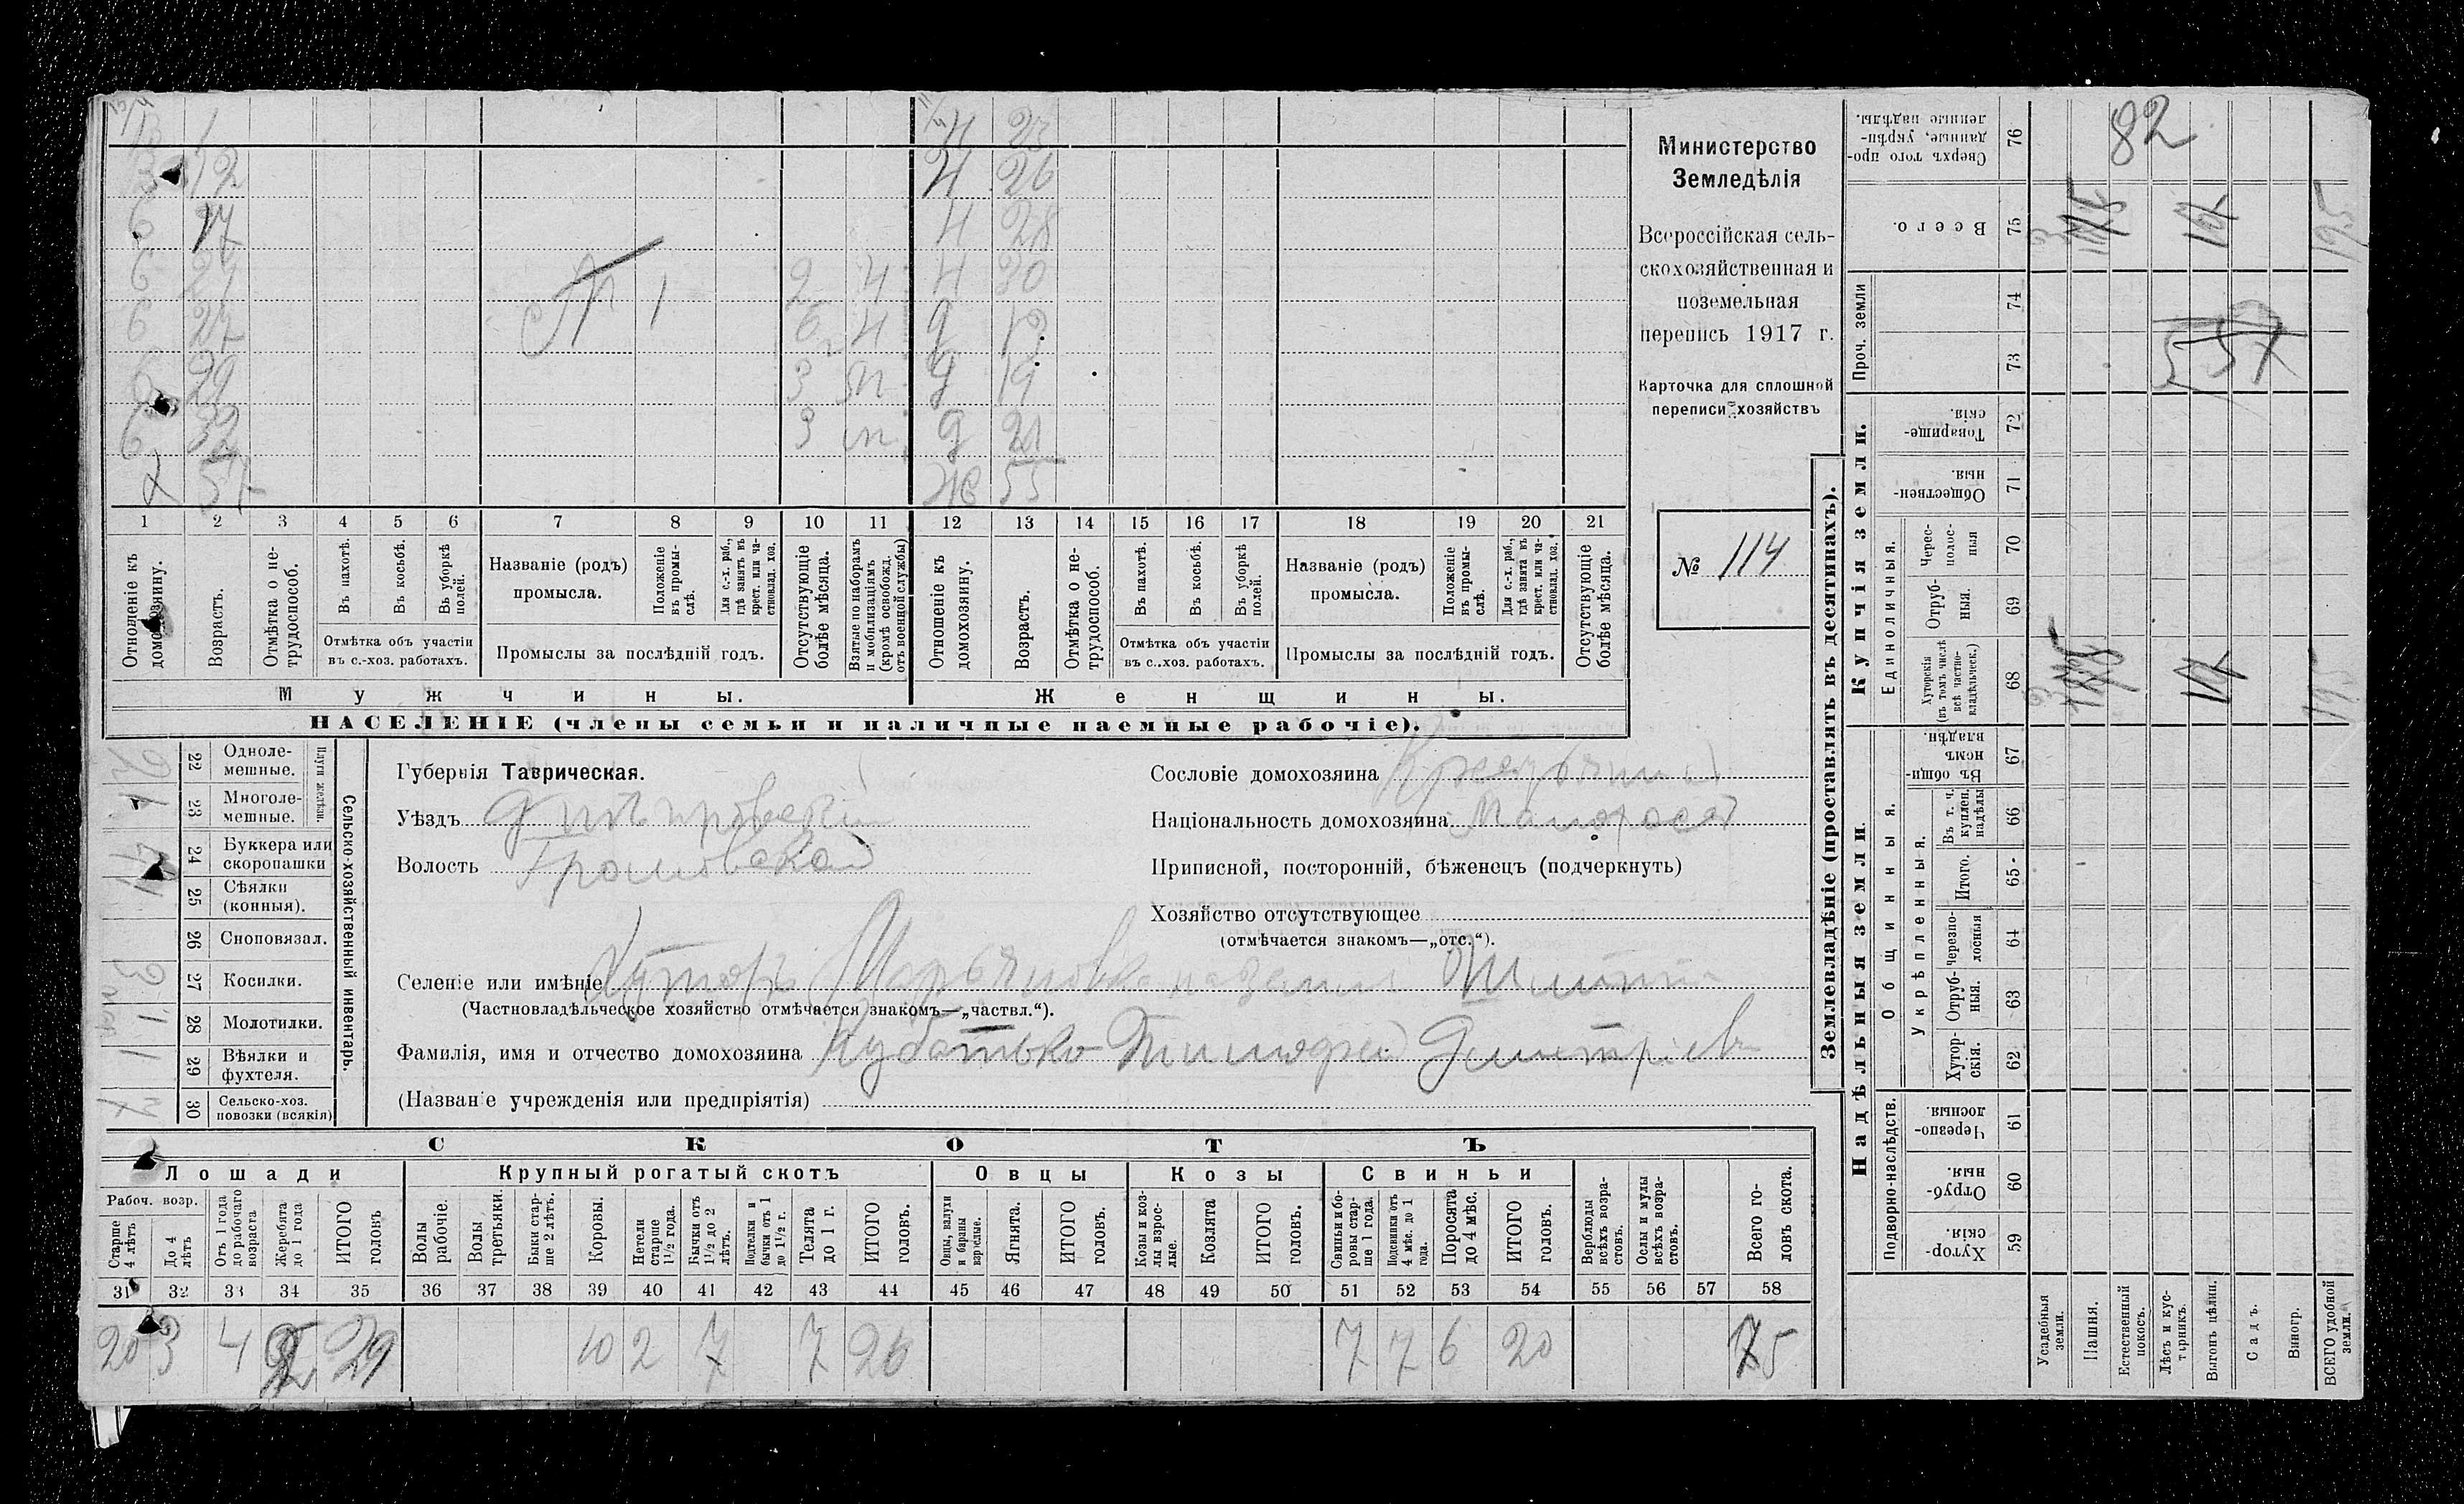 Министерство
Земледѣлія
Всероссійская сель-
скохозяйственная и
поземельная
перепись 1917 г.
Карточка для сплошной
переписи хозяйствъ
№ 114
12 Н 26
17 Н 28
Н 30
27
29 3 д 19
3 д 21
57 Ж 55
1 2 3 4 5 6 7 8 9 10 11 12 13 14 15 16 17 18 19 20 21
Отношеніе къ домохозяину.
Возрастъ.
Отмѣтка о не-трудоспособ.
Въ пахотѣ.
Въ косьбѣ.
Въ уборкѣ полей.
Отмѣтка объ участіи
въ с.-хоз. работахъ.
Названіе (родъ)
промысла.
Положеніе въ промы-слѣ.
Для с.-х. раб., гдѣ занятъ въ крест. или ча-ствовлад. хоз.
Промыслы за послѣдній годъ.
Отсутствующіе болѣе мѣсяца.
Взятые по наборамъ и мобилизаціямъ (кромѣ освобожд. отъ военной службы)
Отношеніе къ домохозяину.
Возрастъ.
Отмѣтка о не-трудоспособ.
Въ пахотѣ.
Въ косьбѣ.
Въ уборкѣ полей.
Отмѣтка объ участіи
въ с.-хоз. работахъ.
Названіе (родъ)
промысла.
Положеніе въ промы-слѣ.
Для с.-х. раб., гдѣ занята въ крест. или ча-ствовлад. хоз.
Промыслы за послѣдній годъ.
Отсутствующіе болѣе мѣсяца.
Мужчины. Женщины.
НАСЕЛЕНІЕ (члены семьи и наличные наемные рабочіе).
Сельско-хозяйственный инвентарь.
Плуги желѣзн.
22 Одноле-мешные.
23 Многоле-мешные.
24 Буккера или скоропашки
25 Сѣялки (конныя).
26 Сноповязал.
27 Косилки.
28 Молотилки.
29 Вѣялки и фухтеля.
30 Сельско-хоз. повозки (всякія)
Губернія Таврическая.
Уѣздъ Днѣпровскій
Волость Громовская
Сословіе домохозяина Крестьянин
Національность домохозяина Малорос
Приписной, посторонній, бѣженецъ (подчеркнуть)
Хозяйство отсутствующее
(отмѣчается знакомъ—„отс.“).
Селеніе или имѣніе Хуторъ Марьяновка
(Частновладѣльческое хозяйство отмѣчается знакомъ—„частвл.“).
Фамилія, имя и отчество домохозяина Кубатько Тимофей Дмитріев
(Названіе учрежденія или предпріятія)
СКОТЪ
Лошади Крупный рогатый скотъ Овцы Козы Свиньи
Рабоч. возр.
Старше 4 лѣтъ
До 4 лѣтъ
Отъ 1 года до рабочаго возраста
Жеребята до 1 года
ИТОГО головъ
Волы рабочіе.
Волы третьяки.
Быки стар-ше 2 лѣтъ.
Коровы.
Нетели старше 1½ года.
Бычки отъ 1½ до 2 лѣтъ.
Подтелки и бычки отъ 1 до 1½ г.
Телята до 1 г.
ИТОГО головъ.
Овцы, валухи и бараны взрослые.
Ягнята.
ИТОГО головъ.
Козы и коз-лы взрос-лые.
Козлята
ИТОГО головъ.
Свиньи и бо-ровы стар-ше 1 года.
Подсвинки отъ 4 мѣс. до 1 года.
Поросята до 4 мѣс.
ИТОГО головъ.
Верблюды всѣхъ возра-стовъ.
Ослы и мулы всѣхъ возра-стовъ.
Всего го-ловъ скота.
31 32 33 34 35 36 37 38 39 40 41 42 43 44 45 46 47 48 49 50 51 52 53 54 55 56 57 58
20 3 4 2 29 10 2 7 7 26 7 7 6 20 75
Землевладѣніе (проставлять въ десятинахъ).
Надѣльныя земли. Купчія земли.
Подворно-наслѣдств.
Общинныя.
Укрѣпленныя.
Единоличныя.
Проч. земли
59 Хутор-скія.
60 Отруб-ныя.
61 Черезпо-лосныя.
62 Хутор-скія.
63 Отруб-ныя.
64 Черезпо-лосныя
65 Итого.
66 Въ т. ч. куплен. надѣлы
67 Въ общин-номъ владѣн.
68 Хуторскія (въ томъ числѣ всѣ частно-владѣльческ.)
69 Отруб-ныя.
70 Черес-полос-ныя
71 Обществен-ныя.
72 Товарище-скія.
73
74
75 Всего.
76 Сверхъ того про-данные, укрѣп-ленные надѣлы.
Усадебныя земли.
Пашня.
Естественный покосъ.
Лѣсъ и кус-тарникъ.
Выгонъ цѣлин.
Садъ.
Виногр.
ВСЕГО удобной земли.
82
195
557
195